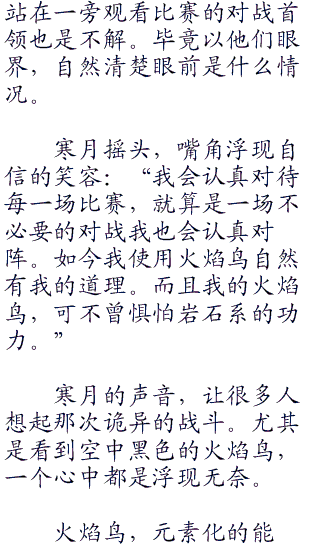 站在一旁观看比赛的对战首
领也是不解。毕竟以他们眼
界，自然清楚眼前是什么情
况。
寒月摇头，嘴角浮现自
信的笑容：“我会认真对待
每一场比赛，就算是一场不
必要的对战我也会认真对
阵。如今我使用火焰鸟自然
有我的道理。而且我的火焰
鸟，可不曾惧怕岩石系的功
力。”
寒月的声音，让很多人
想起那次诡异的战斗。尤其
是看到空中黑色的火焰鸟，
一个心中都是浮现无奈。
火焰鸟，元素化的能